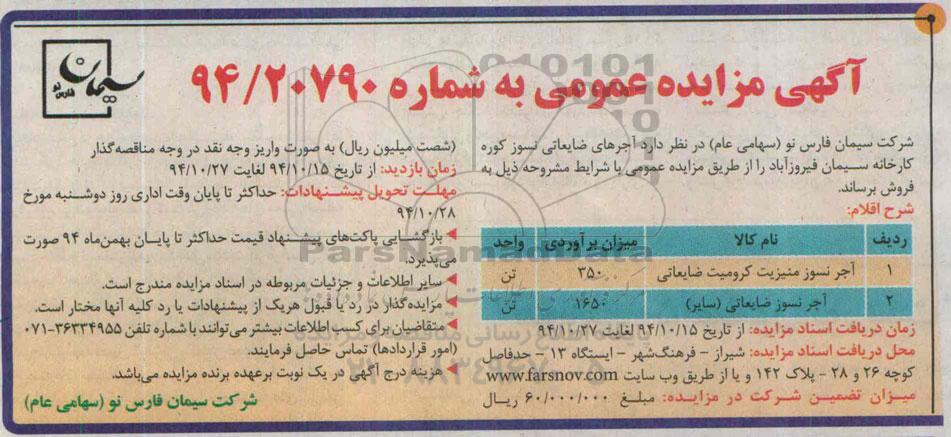 آگهی مزایده عمومی به شماره ۹۴/۲۰۷۹۰
سیمان
فارس نو
شرکت سیمان فارس نو (سهامی عام) در نظر دارد آجرهای ضایعاتی نسوز کوره
کارخانه سیمان فیروزآباد را از طریق مزایده عمومی با شرایط مشروحه ذیل به
فروش برساند.
شرح اقلام:
ردیف نام کالا میزان برآوردی واحد
۱ آجر نسوز منیزیت کرومیت ضایعاتی ۳۵۰ تن
۲ آجر نسوز ضایعاتی (سایر) ۱۶۵۰ تن
زمان دریافت اسناد مزایده: از تاریخ ۹۴/۱۰/۱۵ لغایت ۹۴/۱۰/۲۷
محل دریافت اسناد مزایده: شیراز - فرهنگ‌شهر - ایستگاه ۱۳ - حدفاصل
کوچه ۲۶ و ۲۸ - پلاک ۱۴۲ و یا از طریق وب سایت www.farsnov.com
میزان تضمین شرکت در مزایده: مبلغ ۶۰/۰۰۰/۰۰۰ ریال
(شصت میلیون ریال) به صورت واریز وجه نقد در وجه مناقصه‌گذار
زمان بازدید: از تاریخ ۹۴/۱۰/۱۵ لغایت ۹۴/۱۰/۲۷
مهلت تحویل پیشنهادات: حداکثر تا پایان وقت اداری روز دوشنبه مورخ
۹۴/۱۰/۲۸
بازگشایی پاکت‌های پیشنهاد قیمت حداکثر تا پایان بهمن‌ماه ۹۴ صورت
می‌پذیرد.
سایر اطلاعات و جزئیات مربوطه در اسناد مزایده مندرج است.
مزایده‌گذار در رد یا قبول هریک از پیشنهادات یا رد کلیه آنها مختار است.
متقاضیان برای کسب اطلاعات بیشتر می‌توانند با شماره تلفن ۳۶۳۳۴۹۵۵-۰۷۱
(امور قراردادها) تماس حاصل فرمایند.
هزینه درج آگهی در یک نوبت برعهده برنده مزایده می‌باشد.
شرکت سیمان فارس نو (سهامی عام)
ParsNamadData